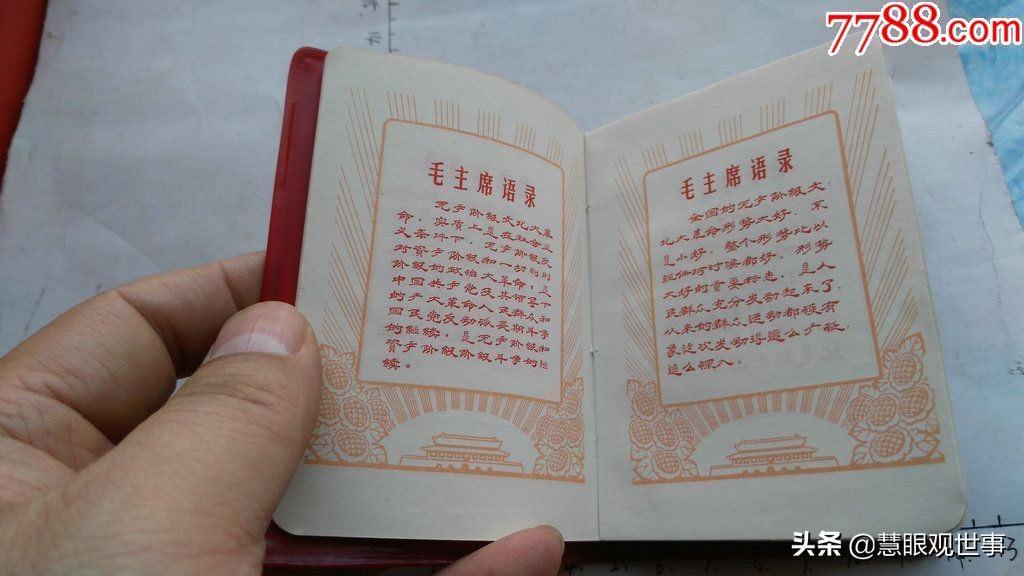 7788.com
毛主席语录
无产阶级文化大革
命，实质上是在社会主
义条件下，无产阶级反
对资产阶级和一切剥削
阶级的政治大革命，是
中国共产党及其领导下
的广大革命人民群众和
国民党反动派长期斗争
的继续，是无产阶级和
资产阶级阶级斗争的继
续。
毛主席语录
全国的无产阶级文
化大革命形势大好，不
是小好。整个形势比以
往任何时候都好。形势
大好的重要标志，是人
民群众充分发动起来了。
从来的群众运动都没有
象这次发动得这么广泛，
这么深入。
头条 @慧眼观世事